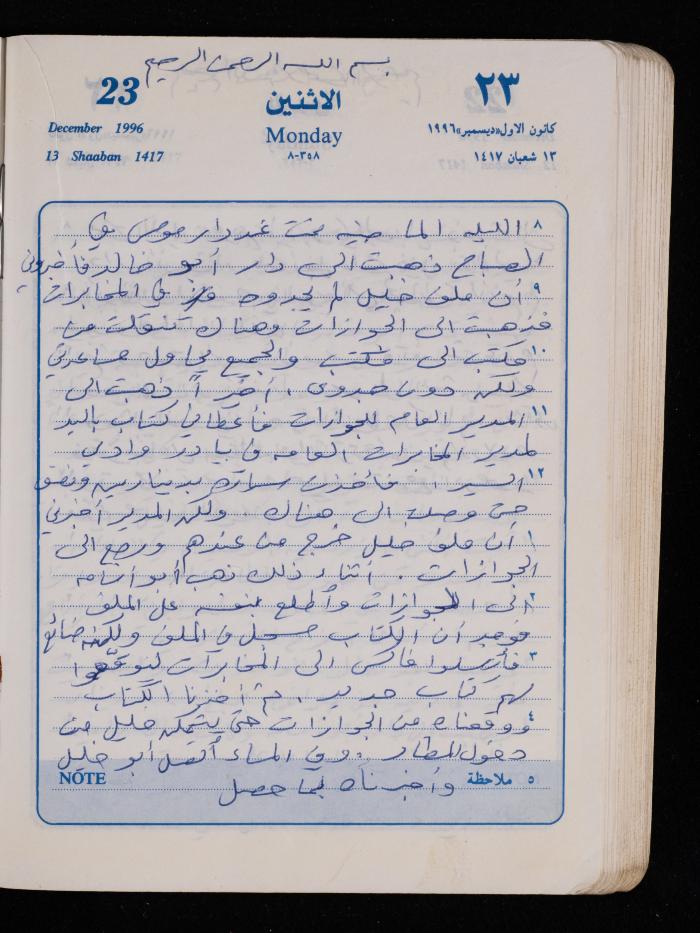 بسم الله الرحمن الرحيم
23 الاثنين ٢٣
December 1996 Monday كانون الاول «ديسمبر» ١٩٩٦
13 Shaaban 1417 ٨-٣٥٨ ١٣ شعبان ١٤١٧
٨ الليله الماضيه نمت عند دار موسى وفي
الصباح ذهبت الى دار أبو خالد فأخبروني
٩ أن ملف خليل لم يجدوه في المخابرات
فذهبت الى الجوازات وهناك تنقلت من
١٠ مكتب الى مكتب والجميع يحاول مساعدتي
ولكن دون جدوى، أخيراً ذهبت الى
١١ المدير العام للجوازات فأعطاني كتاب باليد
لمدير المخابرات العامه في بيادر وادي
١٢ السير، فأخذت سياره بدينارين ونصف
حتى وصلت الى هناك ولكن المدير أخبرني
١ أن ملف خليل خرج من عندهم ورجع الى
الجوازات. أثناء ذلك ذهب أبو أسامه
٢ الى الجوازات وأطلع بنفسه على الملف
فوجد أن الكتاب مسجل في الملف ولكنه ضائع
٣ فأرسلوا فاكس الى المخابرات ليوقعوا
لهم كتاب جديد، ثم أخذنا الكتاب
٤ ووقعناه من الجوازات حتى يتمكن خليل من
دخول المطار. وفي المساء أتصل أبو خليل
NOTE وأخبرناه بما حصل ٥ ملاحظة